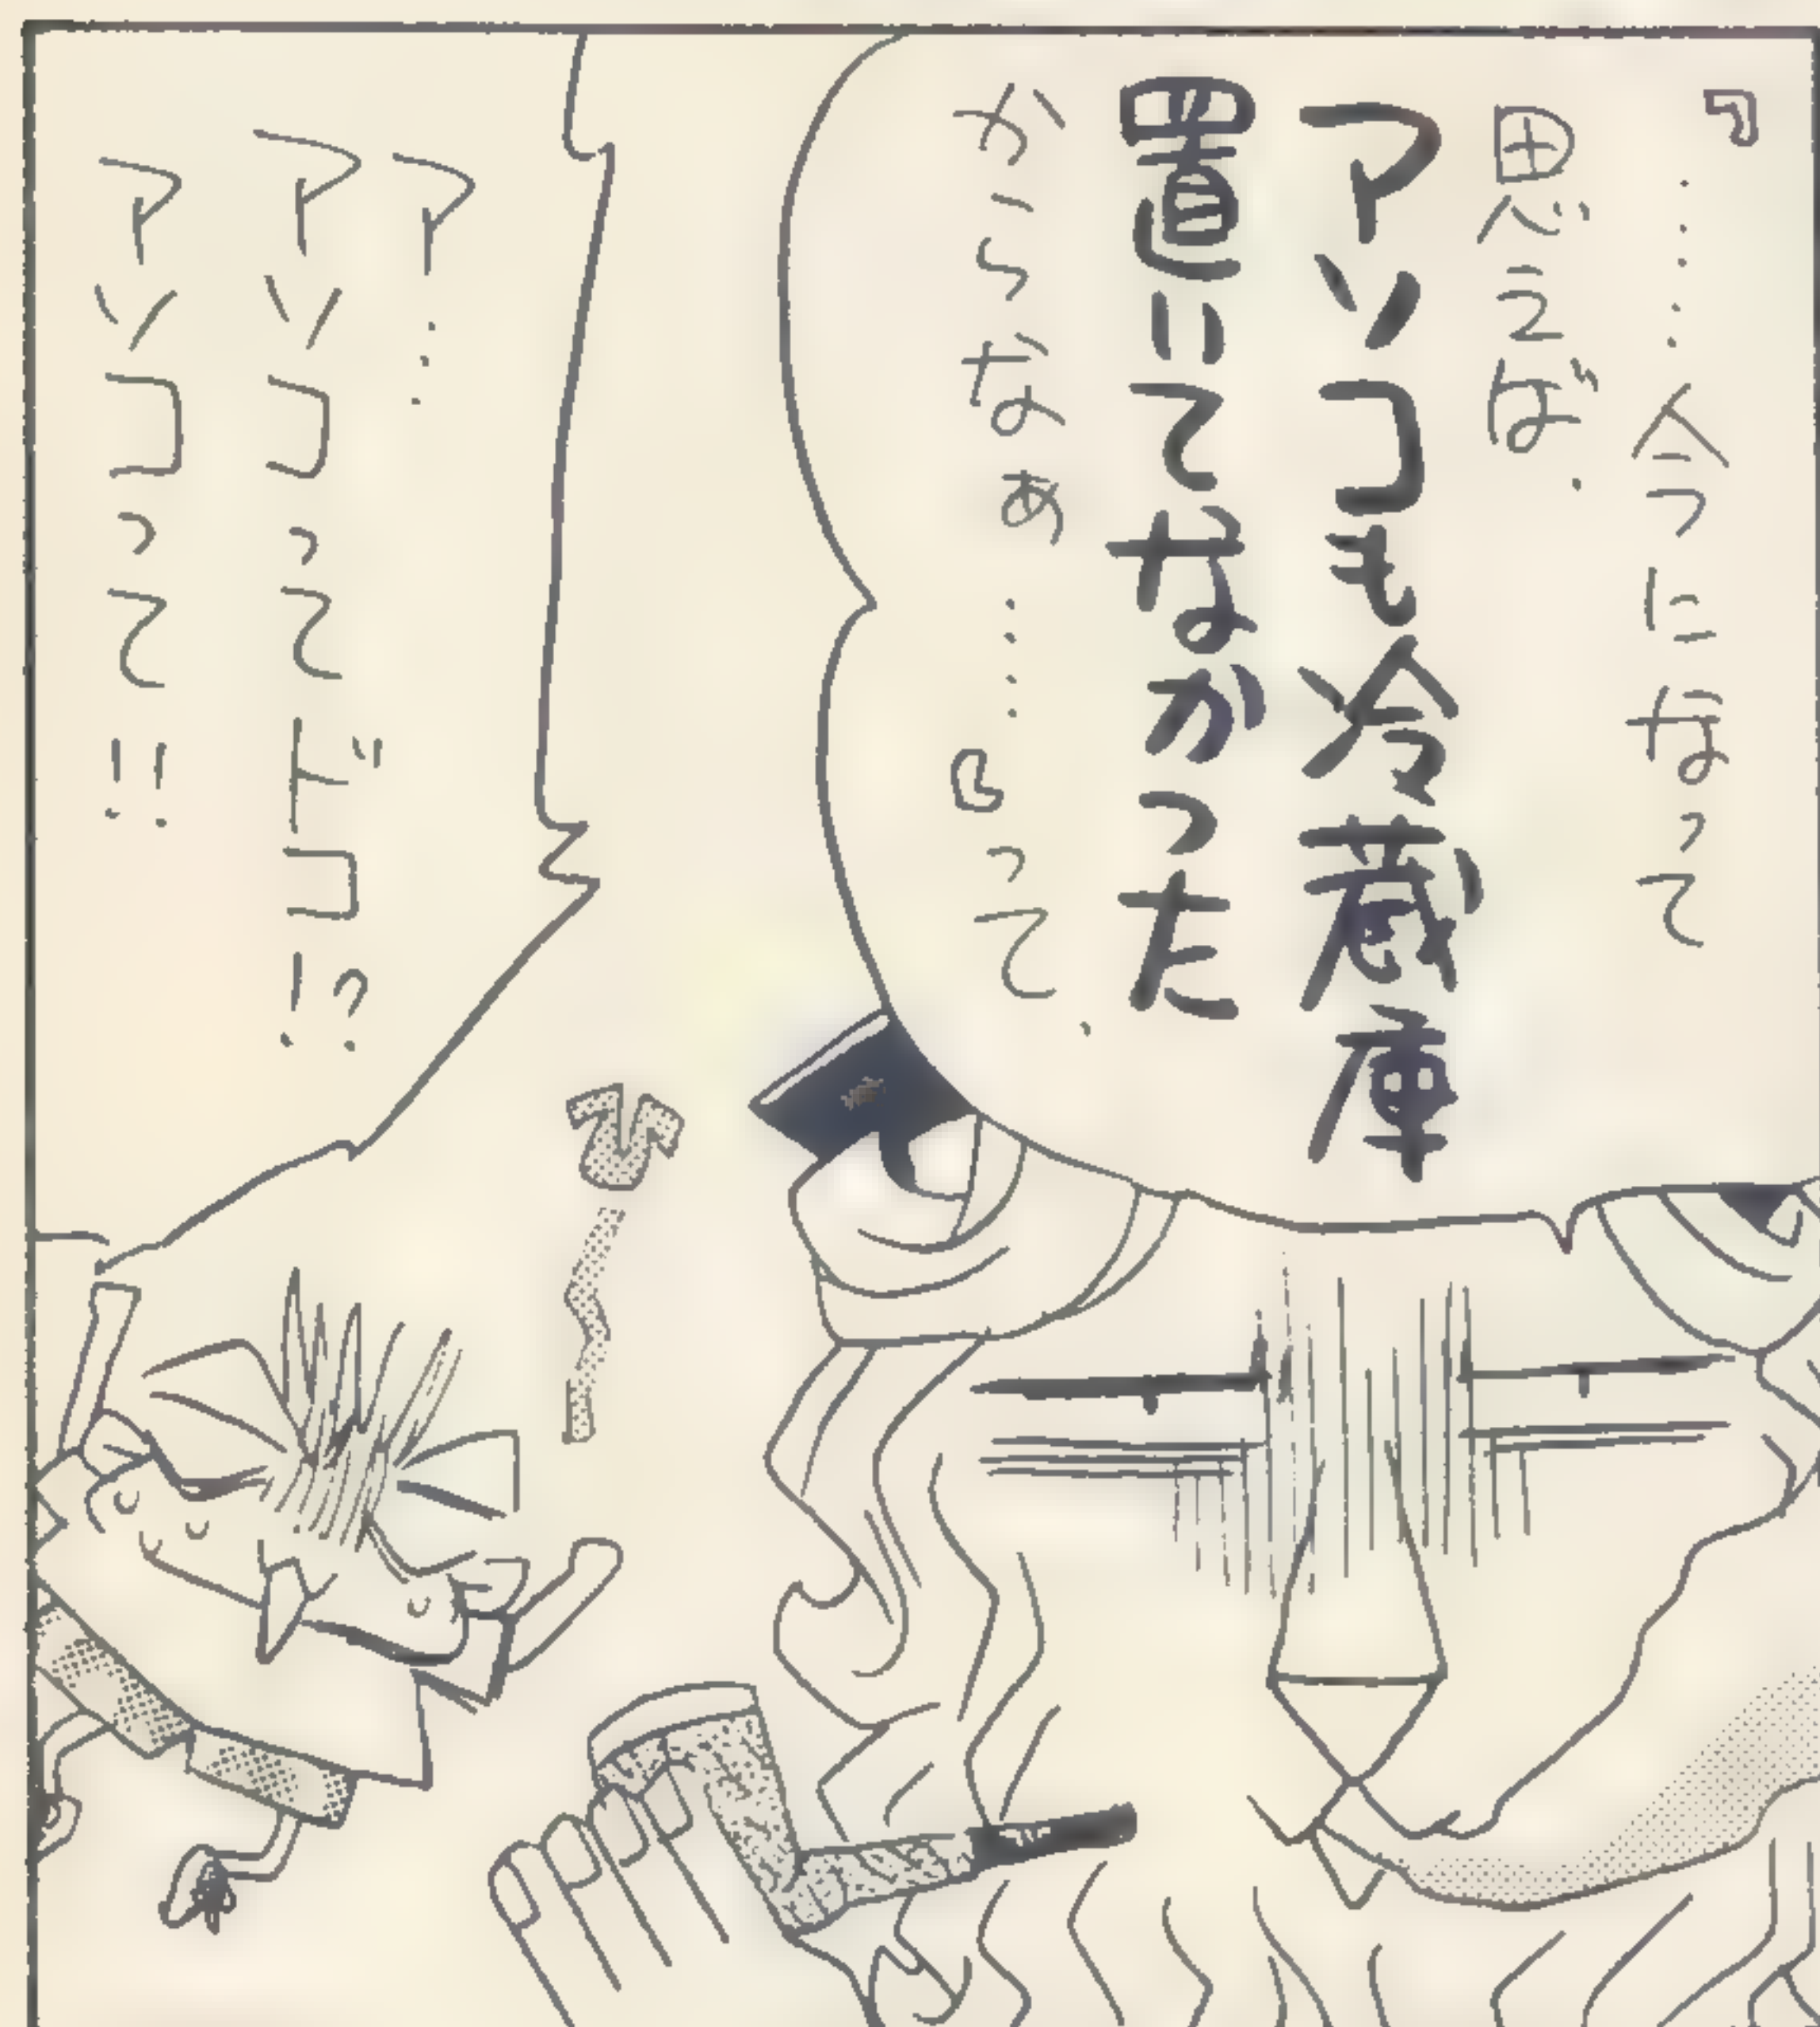 『……今になって
思えば、
アソコも冷蔵庫
置いてなかった
からなぁ……』って、
ア…
アソコってドコ!?
アソコって!!